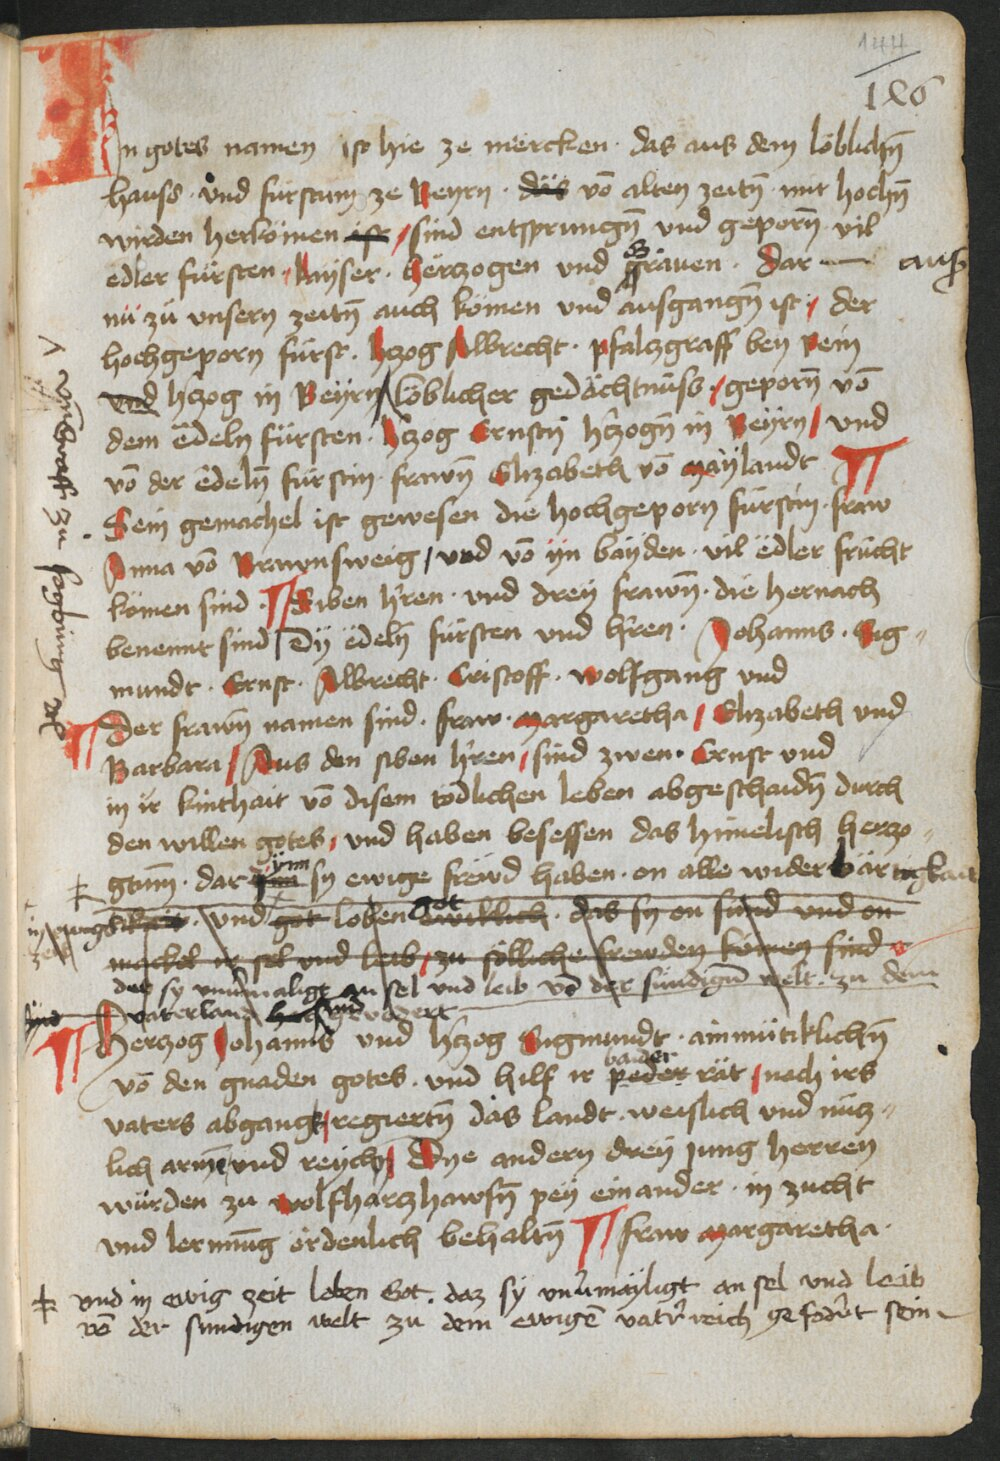 144
186
In gotes namen ist hie ze mercken · das aus dem löblichñ
hauss · und fürstum ze Beyrn · das võ alten zeitñ mit hochñ
wirden herkömen ist / sind entsprungñ und geporñ vil
edler fürsten / kayser · hertzogen und Grauen · Dar — auß
nü zü unsern zeitñ auch kömen und ausgangñ ist / der
hochgeporn fürst · Htzog Albrecht · pfalzgraff bey Rein
und htzog in Beyrn / löblicher gedächtnüss / geporñ võ
dem edeln fürsten · Htzog Ernstñ htzogñ in Beyrn / und
võ der edelñ fürstin frawñ Elizabeth võ Maylandt
Sein gemachel ist gewesen die hochgeporn fürstin · fraw
Anna võ Brawnsweig / und võ ijn bayden · vil edler frücht
kömen sind · Siben hren · und drey frawñ · die hernach
benennt sind Dÿ edelñ fürsten und hren · Johanns · Sig-
mundt · Ernst · Albrecht · Cristoff · Wolfgang und
Der frawñ namen sind · fraw · Margaretha / Elizabeth und
Barbara / Aus den siben hren / sind zwen · Ernst und
in ir kinthait võ disem tödlichen leben abgeschaidñ durch
den willen gotes / und haben besessen das himelisch hertzo-
gtum · dar ynn sy ewige frewd haben · on alle widerbärtigkait
und got loben got ewiklich · das sy on sünd und on
mackel ir sel und leib / zu sölliche frewden kömen sind
das sy unvermaligt an sel und leib võ der sündigñ welt · zu dem
vaterland
Hertzog Johanns und htzog Sigmundt · ainmütiklichñ
võ den gnaden gotes · und hilf ir peder baider rät / nach irs
vaters abgangk / regiertñ das landt · weislich und nütz-
lich armẽ und reychñ / Dye andern drey jung herren
würden zu Wolfhartzhawsñ pey einander · in zucht
und lernüng ordenlich behaltñ fraw Margaretha ·
und in ewig zeit loben Got · daz sy unvermayligt an sel und leib
võ der sundigen welt zu dem ewigẽ vatrreich gefodert sein